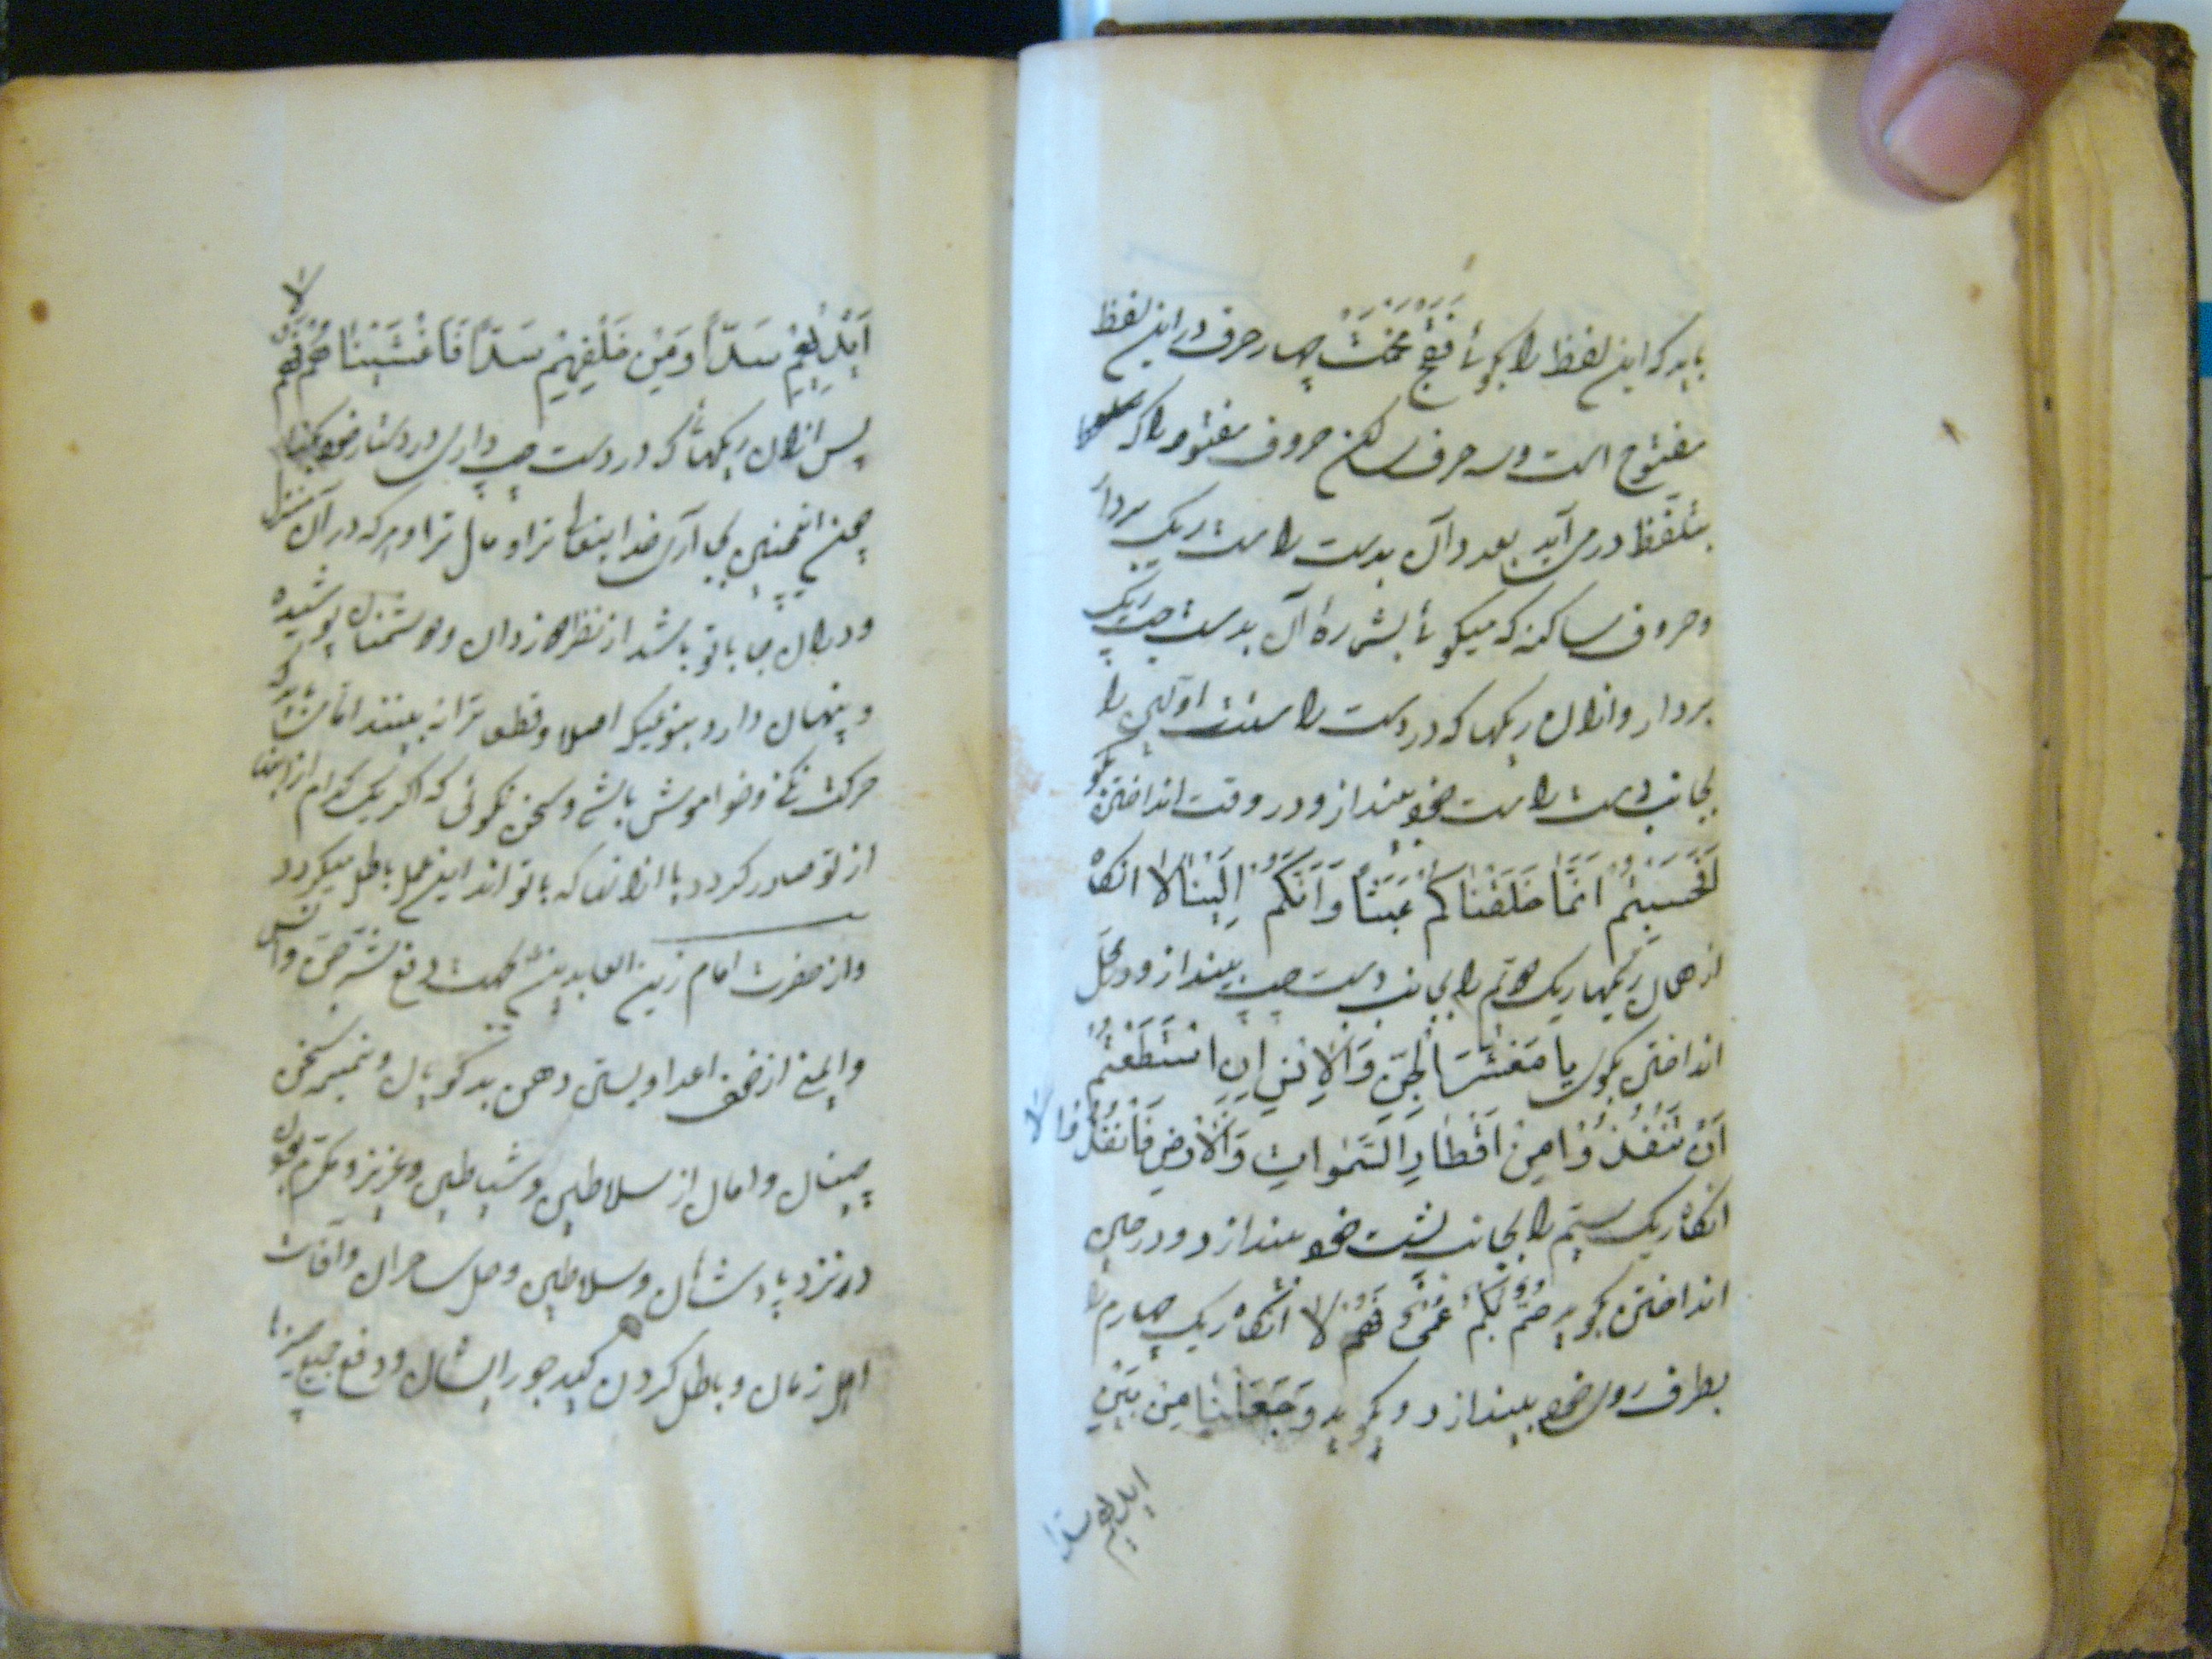 باید که این لفظ را بگوئی فقج مخمت چهار حرف در این لفظ
مفتوح است و سه حرف ساکن حروف مفتوحه را که
بتلفظ در می آید بعدد آن بدست راست ریک بردار
و حروف ساکنه که میگوئی بشماره آن بدست چپ ریک
بردار و از آن ریکها که در دست راستت اولین را
بجانب دست راست خود بینداز و در وقت انداختن بگو
اَفَحَسِبْتُمْ اَنَّمَا خَلَقْنَاكُمْ عَبَثاً وَاَنَّكُمْ اِلَيْنَا لا انکاه
از همان ریکها ریک دوم را بجانب دست چپ بینداز و در محل
انداختن بگوی یا مَعْشَرَ الْجِنِّ وَالْاِنْسِ اِنِ اسْتَطَعْتُمْ
اَنْ تَنْفُذُوا مِنْ اَقْطَارِ السَّمٰوَاتِ وَالْاَرْضِ فَانْفُذُوا لا
انکاه ریک سیم را بجانب پشت خود بیندازد و در حین
انداختن بگوید صُمٌّ بُكْمٌ عُمْیٌ فَهُمْ لا انکاه ریک چهارم را
بطرف روی خود بیندازد و بگوید وَجَعَلْنَا مِنْ بَیْنِ
ایدیهم سدا
اَیْدِیْهِمْ سَدّاً وَمِنْ خَلْفِهِمْ سَدّاً فَاَغْشَیْنَاهُمْ فَهُمْ لا
پس از آن ریکهائی که در دست چپ داری در دستار خود
چون اینچنین بجای آری خدایتعالی ترا و مال ترا و هر که در آن منزل
و در آن جا با تو باشد از نظر دزدان و دشمنان پوشیده
و پنهان دارد بنوعیکه اصلا و قطعا ترا نه بینند اما باید که
حرکت نکنی و خواموش باشی و سخن نکوئی که اکر یک کدام از اینها
از تو صادر کردد یا از آنها که با تو اند این عمل باطل میکردد
و از حضرت امام زین العابدین جهت دفع شر جن و انس
و ایمنی از خوف اعدا و بستن دهن بد کویان و سخن
چینان و امان از سلاطین و شیاطین و عزیز و مکرم بودن
در نزد پادشاهان و سلاطین و حل ساحران و آفات
اهل زمان و باطل کردن کید جور ایشان و دفع جمیع